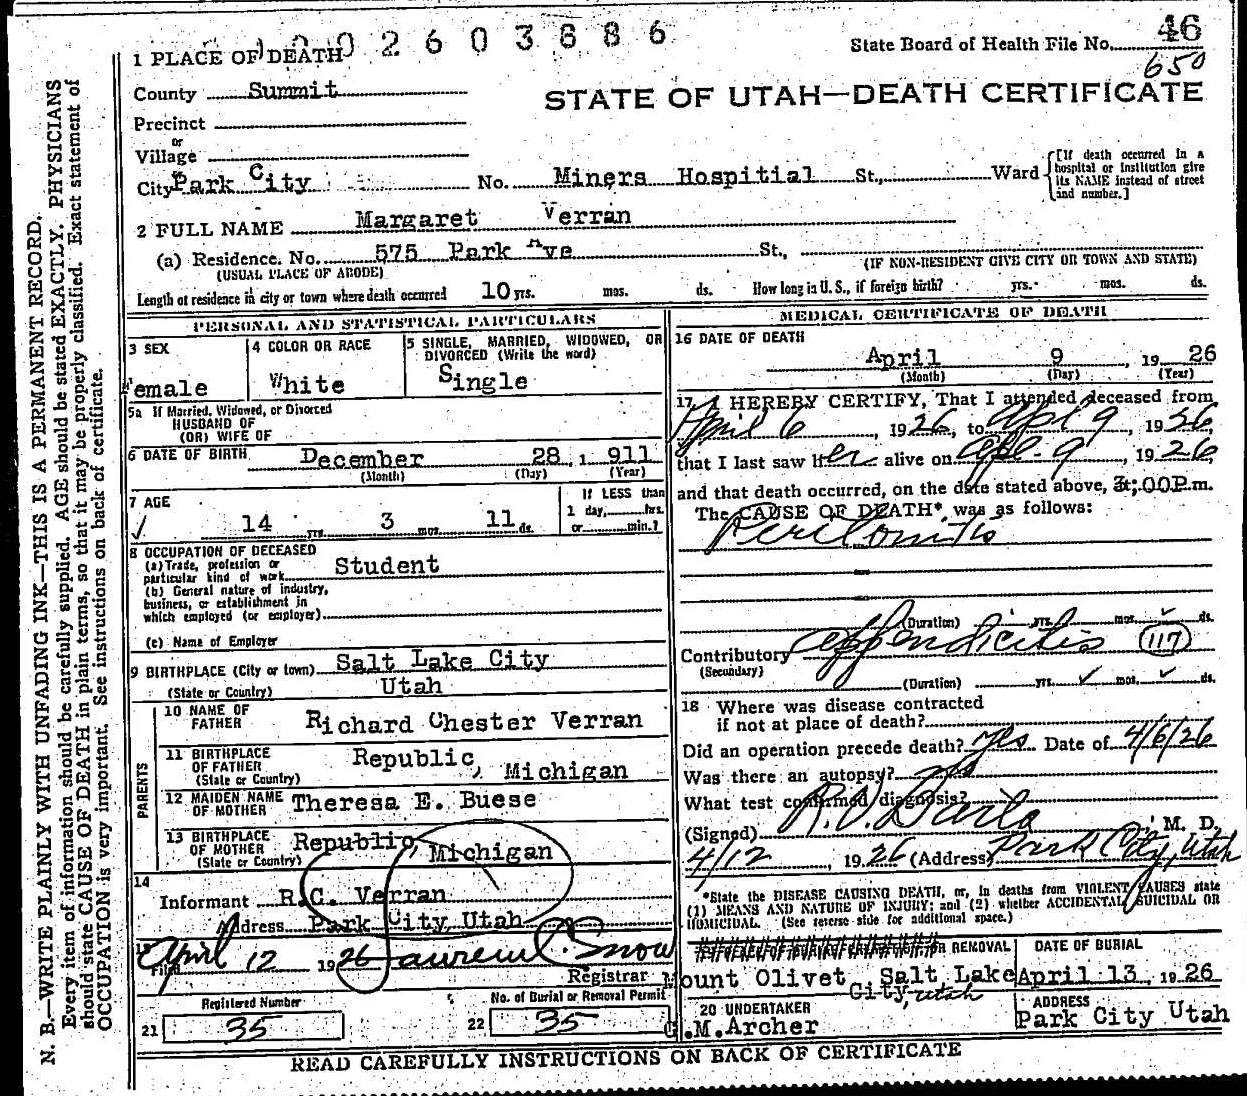 2 6 0 3 8 8 6
46
State Board of Health File No.
650
1 PLACE OF DEATH
County Summit
STATE OF UTAH—DEATH CERTIFICATE
Precinct
or
Village
City Park City No. Miners Hospitial St., Ward
[If death occurred in a hospital or institution give its NAME instead of street and number.]
2 FULL NAME Margaret Verran
(a) Residence. No. 575 Park Ave St.,
(USUAL PLACE OF ABODE) (IF NON-RESIDENT GIVE CITY OR TOWN AND STATE)
Length of residence in city or town where death occurred 10 yrs. mos. ds. How long in U. S., if foreign birth? yrs. mos. ds.
PERSONAL AND STATISTICAL PARTICULARS
3 SEX
Female
4 COLOR OR RACE
White
5 SINGLE, MARRIED, WIDOWED, OR
DIVORCED (Write the word)
Single
5a If Married, Widowed, or Divorced
HUSBAND OF
(OR) WIFE OF
6 DATE OF BIRTH December 28, 1911
(Month) (Day) (Year)
7 AGE
14 yrs. 3 mos. 11 ds.
If LESS than
1 day, hrs.
or min.?
8 OCCUPATION OF DECEASED
(a) Trade, profession or
particular kind of work Student
(b) General nature of industry,
business, or establishment in
which employed (or employer)
(c) Name of Employer
9 BIRTHPLACE (City or town) Salt Lake City
(State or Country) Utah
PARENTS
10 NAME OF
FATHER Richard Chester Verran
11 BIRTHPLACE
OF FATHER
(State or Country) Republic, Michigan
12 MAIDEN NAME
OF MOTHER Theresa E. Buese
13 BIRTHPLACE
OF MOTHER
(State or Country) Republic, Michigan
14
Informant R.C. Verran
Address Park City Utah
15
Filed April 12 1926 Registrar
Registered Number
21 35
No. of Burial or Removal Permit
22 35
MEDICAL CERTIFICATE OF DEATH
16 DATE OF DEATH
April 9 1926
(Month) (Day) (Year)
17 I HEREBY CERTIFY, That I attended deceased from
April 6, 1926, to Apl 9, 1926,
that I last saw her alive on Apl. 9, 1926,
and that death occurred, on the date stated above, 3:00P.m.
The CAUSE OF DEATH* was as follows:
Peritonitis
(Duration) yrs. mos. ds.
Contributory appendicitis 117
(Secondary)
(Duration) yrs. mos. ds.
18 Where was disease contracted
if not at place of death?
Did an operation precede death? yes Date of 4/6/26
Was there an autopsy?
What test confirmed diagnosis?
(Signed) M. D.
4/12, 1926 (Address) Park City, Utah
*State the DISEASE CAUSING DEATH, or, in deaths from VIOLENT CAUSES state
(1) MEANS AND NATURE OF INJURY; and (2) whether ACCIDENTAL, SUICIDAL OR
HOMICIDAL. (See reverse side for additional space.)
OR REMOVAL
Mount Olivet Salt Lake
City, Utah
DATE OF BURIAL
April 13, 1926
20 UNDERTAKER
.M.Archer
ADDRESS
Park City Utah
READ CAREFULLY INSTRUCTIONS ON BACK OF CERTIFICATE
N. B.—WRITE PLAINLY WITH UNFADING INK—THIS IS A PERMANENT RECORD.
Every item of information should be carefully supplied. AGE should be stated EXACTLY. PHYSICIANS
should state CAUSE OF DEATH in plain terms, so that it may be properly classified. Exact statement of
OCCUPATION is very important. See instructions on back of certificate.